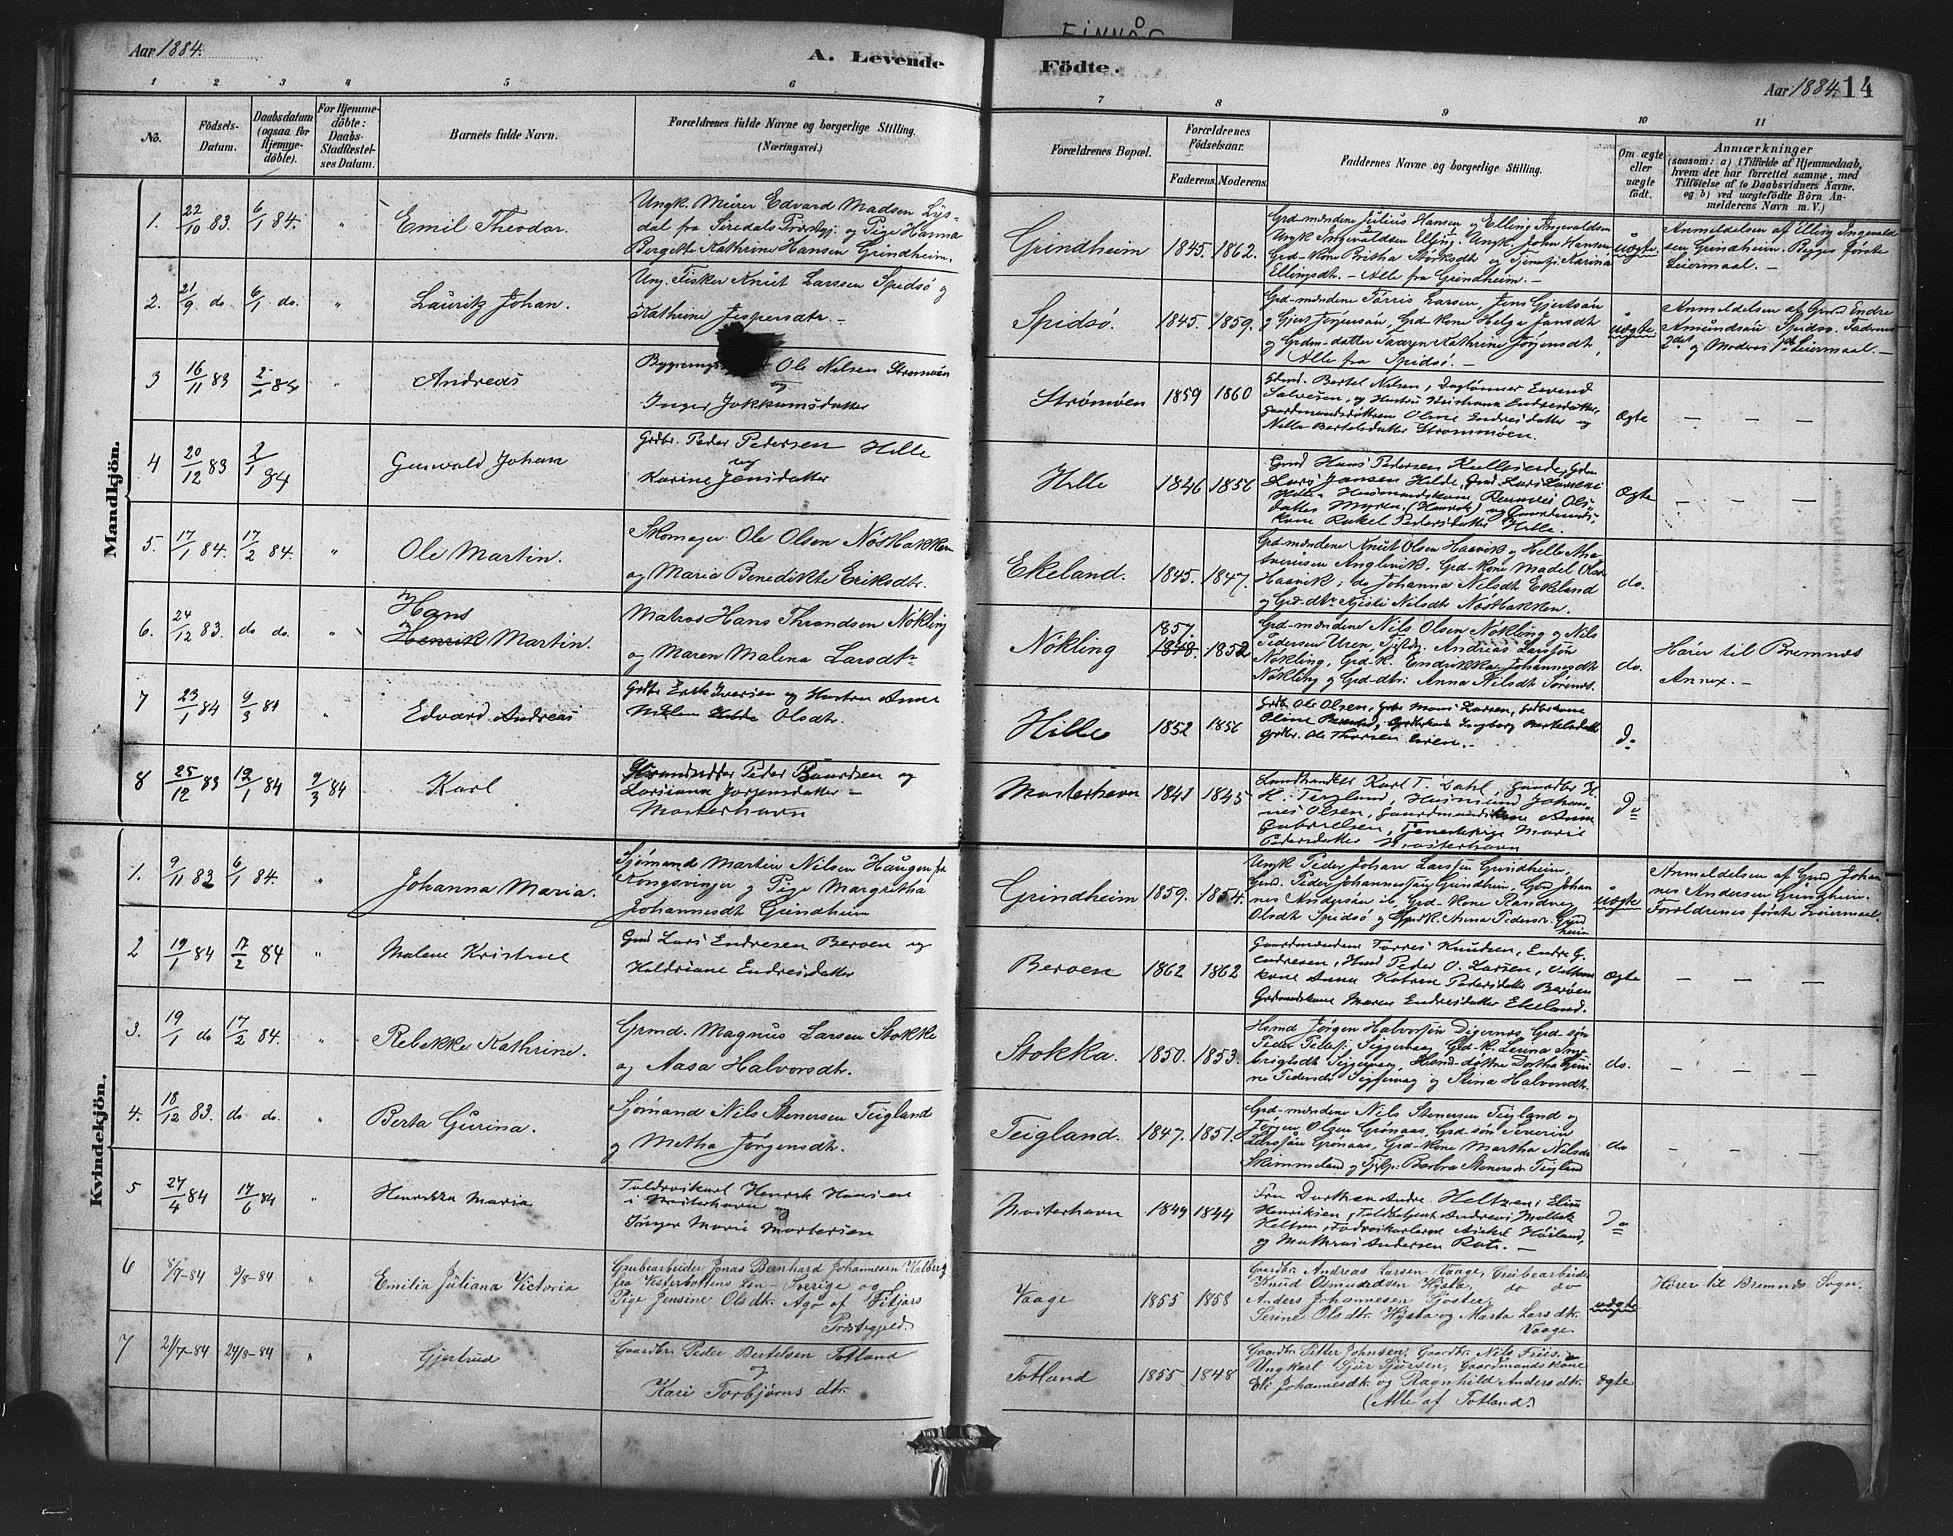 FINNÅS
Aar 1884.
A. Levende
Födte.
Aar 1884. 14
1 2 3 4 5 6 7 8 9 10 11
No.
Födsels-
Datum.
Daabsdatum
(ogsaa for
Hjemme-
döbte).
For Hjemme-
döbte:
Daabs-
Stadfæstel-
ses Datum.
Barnets fulde Navn.
Forældrenes fulde Navne og borgerlige Stilling.
(Næringsvei.)
Forældrenes Bopæl.
Forældrenes
Födselsaar.
Faderens. Moderens.
Faddernes Navne og borgerlige Stilling.
Om ægte
eller
uægte
født.
Anmærkninger
(saasom: a) i Tilfælde af Hjemmedaab,
hvem der har forrettet samme, med
Tilföielse af to Daabsvidners Navne.
og b) ved uægtefödte Börn An-
melderens Navn m. V.)
Mandkjön.
1. 22/10 83 6/1 84. " Emil Theodor.
Ungk. Murer Edvard Madsen Lys-
dal fra Siredals Præstgj. og Pige Hanna
Bergitte Kathrine Hansen Grindheim.
Grindheim 1845. 1862.
Grd-mændene Julius Hansen og Elling Ingevaldsen
Ungk Ingevaldsen Elling. Ungk. John Hansen
Grd-kone Britha Størksdt og Tjenstp. Karina
Ellingsdt. - Alle fra Grindheim. -
uægte
Anmeldelsen af Elling Ingevald
sen Grindheim. Begges første
Leiermaal. -
2. 21/9 do 6/1 do. " Lauritz Johan.
Ung. Fisker Knut Larssen Spidsø og
Kathrine Jespersdtr. -
Spidsø. 1845. 1859.
Grd-mændene Tørris Larsen, Jens Gjertsøn
og Gjert Jørgensøn, Grd-kone Helga Jansdt
og Grdm-datter Kathrine Jørgensdt,
Alle fra Spidsø. -
uægte
Anmeldelsen af Grd Endre
Amundsøn Spidsø. Faderens
2det og Moders 1ste Leiermaal. -
3 16/11 83 2/1 84 " Andreas
Bygnings Ole Nilsen Strømøen
og
Inger Jokkumsdatter
Strømøen 1859 1860
Gdmd. Bertel Nilsen, Daglønner Eevend
Salvesen, og Hustru Kristiana Endresdatter,
gaardmandsdøttren Oline Endresdatter og
Nille Bertelsdatter Strømmøen.
Ægte - - -
4 20/12 83 2/1 84 Gunvald Johan
Grdbr. Peder Pedersen Hille
og
Karine Jensdatter
Hille 1846 1856
Gmd Hans Pedersen Kulleseide, Gdm
Lars Jansen Hilde, Gmd Lars Larsen
Hille. Husmandskone Ols
datter Myren, (Haavik) og Gaardmands
kone Rakel Pedersdatter Hille
Ægte - - -
5. 17/1 84. 17/2 84. " Ole Martin.
Skomager Ole Olsen Nøstbakken
og Maria Benedikte Eriksdtr.
Ekeland. 1845. 1847.
Grd-mændene Knut Olsen Haavik og Helle
Anglevik, Grd-kone Madel Olsdt
Haavik, do Johanna Nilsdt Ekeland
og Grd-dtr Kristi Nilsdt Nøstbakken.
do.
6. 24/12 83. do do. " Hans
Henrik Martin.
Matros Hans Throndsen Nøkling
og Maren Malena Larsdtr
Nøkling 1857. 1848. 1852
Grd-mændene Nils Olsen Nøkling og Nils
Pedersen Uren, Andreas Larssøn
Nøkling. Grd-k. Endrikka Johannesdt
Nøkling og Grd-dtr: Anna Nilsdt
do.
Hører til Bremnes
Annex. -
7 23/1 84 9/3 84 " Edvard Andreas
Grdbr Erik Iversen og Hustru Anne
Hilde Olsdtr.
Hille 1852 1856
Grdbr Ole Olsen, Grdbr Mons Larsen, Grdbrkone
Oline Grdbrkone Ingborg Bertelsdatter
Grdbr. Ole Thorsen
do
8 25/12 83 12/1 84 9/3 84 Karl
Strandsidder Peder Baardsen og
Larsiana Jørgensdatter -
Mosterhavn
Mosterhavn 1841 1845
Landhandler Karl T. Dahl, Gaardbr K.
H. Teigland, Husmand Johan-
nes Olsen, Gaardmandskone Anne
Gabrielsen, Tjenestepige Marie
Pedersdatter Mosterhavn
do
Kvindekjön.
1. 9/11 83 6/1 84. " Johanna Maria.
Sjømand Martin Nilsen Haugen fra
Kongsvinger og Pige Margretha
Johannesdt Grindheim
Grindheim 1859. 1854.
Ungk Peder Johan Larssen Grindheim,
Gmd. Peder Johannessøn Grindheim, Grd Johan
nes Andersøn ib, Grd-kone Randvei
Olsdt Spidsø og Anna Pedersdt Grind
heim
uægte
Anmeldelsen af Gmd Johan
nes Andersen Grindheim.
Forældrenes første Leiermaal.
2 19/1 84 17/2 84 " Malene Kristine
Gmd Lars Endresen Berøen og
Heldriane Endresdatter
Berøen 1862 1862
Gaardmændene Tørres Knudsen, Endre G.
Endresen, Hmd Peder O. Larsen,
kone Anna Katrine Pedersdatter Berøen
Grdmdskone Maren Endresdatter Ekeland.
Ægte - - -
3. 19/1 do 17/2 84. " Rebekke Kathrine.
Grmd. Magnus Larsen Stokke
og Aasa Halvorsdtr.
Stokka. 1850. 1853.
Hsmd Jørgen Halvorsøn Digernes, Grd-søn
Peder Peders: Siggervaag, Grd-k. Lerina Inge-
brigtsdt Siggervaag, Hsmd-døttre Dortha Guri-
ne Pedersdt Siggervaag og Stina Halvorsdt.
do. - - -
4. 18/12 83. do do. " Berta Gurina.
Sjømand Nils Stenersen Teigland
og Metha Jørgensdt.
Teigland. 1847. 1851.
Grd-mændene Nils Stenersen Teigland og
Jørgen Olsen Grønaas, Grd-søn Severin
Larssøn Grønaas, Grd-kone Martha Nilsdt
Skimmeland og Barbra Stenersdt Teigland
do - - -
5 27/4 84 17/6 84 " Henrikka Maria
Toldrokarl Henrik Hansen
i Mosterhavn og
Inger Marie Mortensen
Mosterhavn 1849 1844
Fru Dorthea Andre. Heltzen, Elim
Henriksen, Toldbetjent Andreas Moltek
Heltzen, Todrokarlerne Askel Høiland,
og Mathias Andersen Røtr. -
do
6 8/7-84 3/8-84 " Emilia Juliana Victoria
Grubearbeider Jonas Bernhard Johannesen Kalberg
fra Vesterbottens Len - Sverige og
Pige Jensine Olsdtr. Agø af Fitjars
Præstegjeld.
Vaage 1855 1858
Gaardbr. Andreas Larsen Vaage, Grubearbeider
Knud Osmundsen Hysta, do do
Anders Johannesen Sjøster,
Serine Olsdtr. Hysta og Marta Larsdtr.
Vaage
uægte
Hører til Bremnes Sogn.
7 21/7-84 24/8-84 " Gjertrud
Gaardbr. Peder Bertelsen Totland
og
Kari Torbjørnsdtr.
Totland 1855 1848
Gaardbr. Peter Johnsen, Gaardbr. Nils Friis.
Ungkarl Sjur Sjursen, Gaardmandskone
Eli Johannesdtr. og Ragnhild Andersdtr.
(Alle af Totland.)
ægte